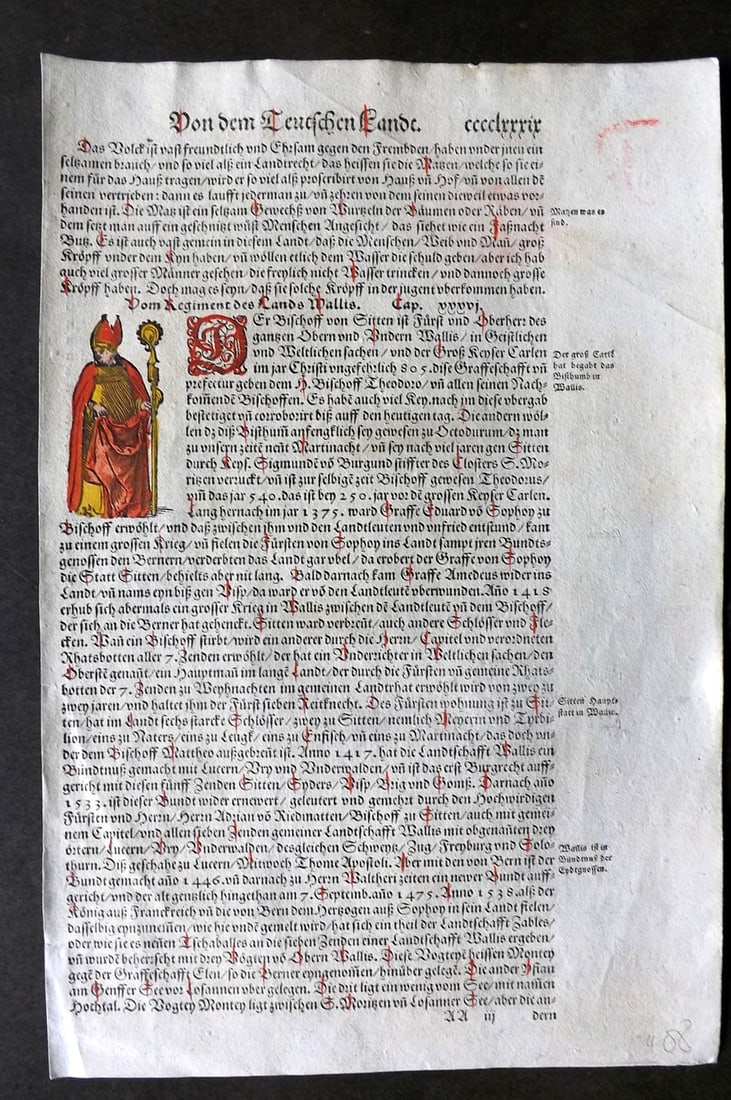 Von dem Teutschen Landt. cccclxxxix
Das Volck ist vast freundtlich vnd Ehrsam gegen den Frembden/ haben vnder jnen ein
seltzamen brauch/ vnd so viel alß ein Landtrecht/ das heissen sie die Matzen/ welche so sie ei-
nem für das Hauß tragen/ wird er so viel alß proscribirt von Hauß vñ Hof/ vñ von allen dē
seinen vertrieben: dann es laufft jederman zu/ vñ zehren von dem seinen dieweil etwas vor-
handen ist. Die Matz ist ein seltzam Gewechß von Wurtzeln der Bäumen oder Räben/ vñ
dem setzt man auff ein geschnitzt wüst Menschen Angesicht/ das siehet wie ein Faßnacht
Butz. Es ist auch vast gemein in diesem Landt/ daß die Menschen/ Weib vnd Mañ/ groß
Kröpff vnder dem Kyn haben/ vñ wöllen etlich dem Wasser die schuld geben/ aber ich hab
auch viel grosser Männer gesehen/ die freylich nicht Wasser trincken/ vnd dannoch grosse
Kröpff haben. Doch mag es seyn/ daß sie solche Kröpff in der jugent vberkommen haben.
Matzen was es
sind.
Vom Regiment des Lands Wallis. Cap. xxxvj.
DEr Bischoff von Sitten ist Fürst vnd Oberherr des
gantzen Obern vnd Vndern Wallis/ in Geistlichen
vnd Weltlichen sachen/ vnd der Groß Keyser Carlen
im jar Christi vngefehrlich 805. dise Graffeschafft vñ
prefectur geben dem H. Bischoff Theodoro/ vñ allen seinen Nach-
kom̃endē Bischoffen. Es habē auch viel Key. nach jm diese vbergab
bestetiget vñ corroborirt biß auff den heutigen tag. Die andern wöl-
len dz diß Bisthum̃ anfengklich sey gewesen zu Octodurum/ dz man
zu vnsern zeitē neñt Martinacht/ vñ sey nach viel jaren gen Sitten
durch Keys. Sigmundē võ Burgund stiffter des Closters S. Mo-
ritzen verruckt/ vñ ist zur selbigē zeit Bischoff gewesen Theodorus/
vm̃ das jar 540. das ist bey 250. jar vor dē grossen Keyser Carlen.
Lang hernach im jar 1375. ward Graffe Eduard võ Sophoy zu
Bischoff erwöhlt/ vnd daß zwischen jhm vnd den Landtleuten vnd vnfried entstund/ kam
zu einem grossen Krieg/ vñ fielen die Fürsten von Sophoy ins Landt sampt jren Bundts-
genossen den Bernern/ verderbten das Landt gar vbel/ da erobert der Graffe von Sophoy
die Statt Sitten/ behielts aber nit lang. Bald darnach kam Graffe Amedeus wider ins
Landt/ vñ nams eyn biß gen Visp/ da ward er võ den Landtleutē vberwunden. Año 1418
erhub sich abermals ein grosser Krieg in Wallis zwischen dē Landtleutē vñ dem Bischoff/
der sich an die Berner hat gehenckt. Sitten ward verbreñt/ auch andere Schlösser vnd Fle-
cken. Wañ ein Bischoff stirbt/ wird ein anderer durch die Herrn/ Capitel vnd verordneten
Rhatsbotten aller 7. Zenden erwöhlt/ der hat ein Vnderrichter in Weltlichen sachen/ den
Oberstē genañt/ ein Hauptmañ im langē Landt/ der durch die Fürsten vñ gemeine Rhats-
botten der 7. Zenden zu Weyhnachten im gemeinen Landtrhat erwöhlt wird von zwey zu
zwey jaren/ vnd haltet jhm der Fürst sieben Reitknecht. Des Fürsten wohnung ist zu Sit-
ten/ hat im Landt sechs starcke Schlösser/ zwey zu Sitten/ nemlich Meyerin vnd Tyrbi-
lion/ eins zu Naters/ eins zu Leugk/ eins zu Enfisch/ vñ eins zu Martinacht/ das doch vn-
der dem Bischoff Mattheo außgebreñt ist. Anno 1417. hat die Landtschafft Wallis ein
Bündtnuß gemacht mit Lucern/ Vry vnd Vnderwalden/ vñ ist das erst Burgrecht auff-
gericht mit diesen fünff Zenden Sitten/ Syders/ Visp/ Brig vnd Gomß. Darnach año
1533. ist dieser Bundt wider ernewert/ geleutert vnd gemehrt durch den Hochwirdigen
Fürsten vnd Herrn/ Herrn Adrian võ Riedmatten/ Bischoff zu Sitten/ auch mit gemei-
nem Capitel/ vnd allen sieben Zenden gemeiner Landtschafft Wallis mit obgenañten drey
örtern/ Lucern/ Vry/ Vnderwalden/ desgleichen Schweys/ Zug/ Freyburg vnd Solo-
thurn. Diß geschahe zu Lucern/ Mitwoch Thome Apostoli. Aber mit den von Bern ist der
Bundt gemacht año 1446. vñ darnach zu Herrn Waltheri zeiten ein newer Bundt auff-
gericht/ vnd der alt gentzlich hingethan am 7. Septemb. año 1475. Anno 1538. alß der
König auß Franckreich vñ die von Bern dem Hertzogen auß Sophoy in sein Landt fielen/
dasselbig eynzunemen/ wie hie vndē gemelt wird/ hat sich ein theil der Landtschafft Zables/
oder wie sie es neñen Tschaballes an die sieben Zenden einer Landtschafft Wallis ergeben/
vñ wurdē beherrscht mit drey Vögten võ Obern Wallis. Diese Vogteyē heissen Montey
gegē der Graffeschafft Elen/ so die Berner eyngenom̃en/ hinüber gelegē. Die ander Yfian
am Genffer See vor Losannen vber gelegen. Die drit ligt ein wenig vom See/ mit namẽn
Hochtal. Die Vogtey Montey ligt zwischen S. Moritzen vñ Losanner See/ aber die an-
AA iij dern
Der groß Carle
hat begabt das
Bisthumb in
Wallis.
Sitten Haupt-
statt in Wallis.
Wallis ist in
Bündtnuß der
Eydtgnossen.
488